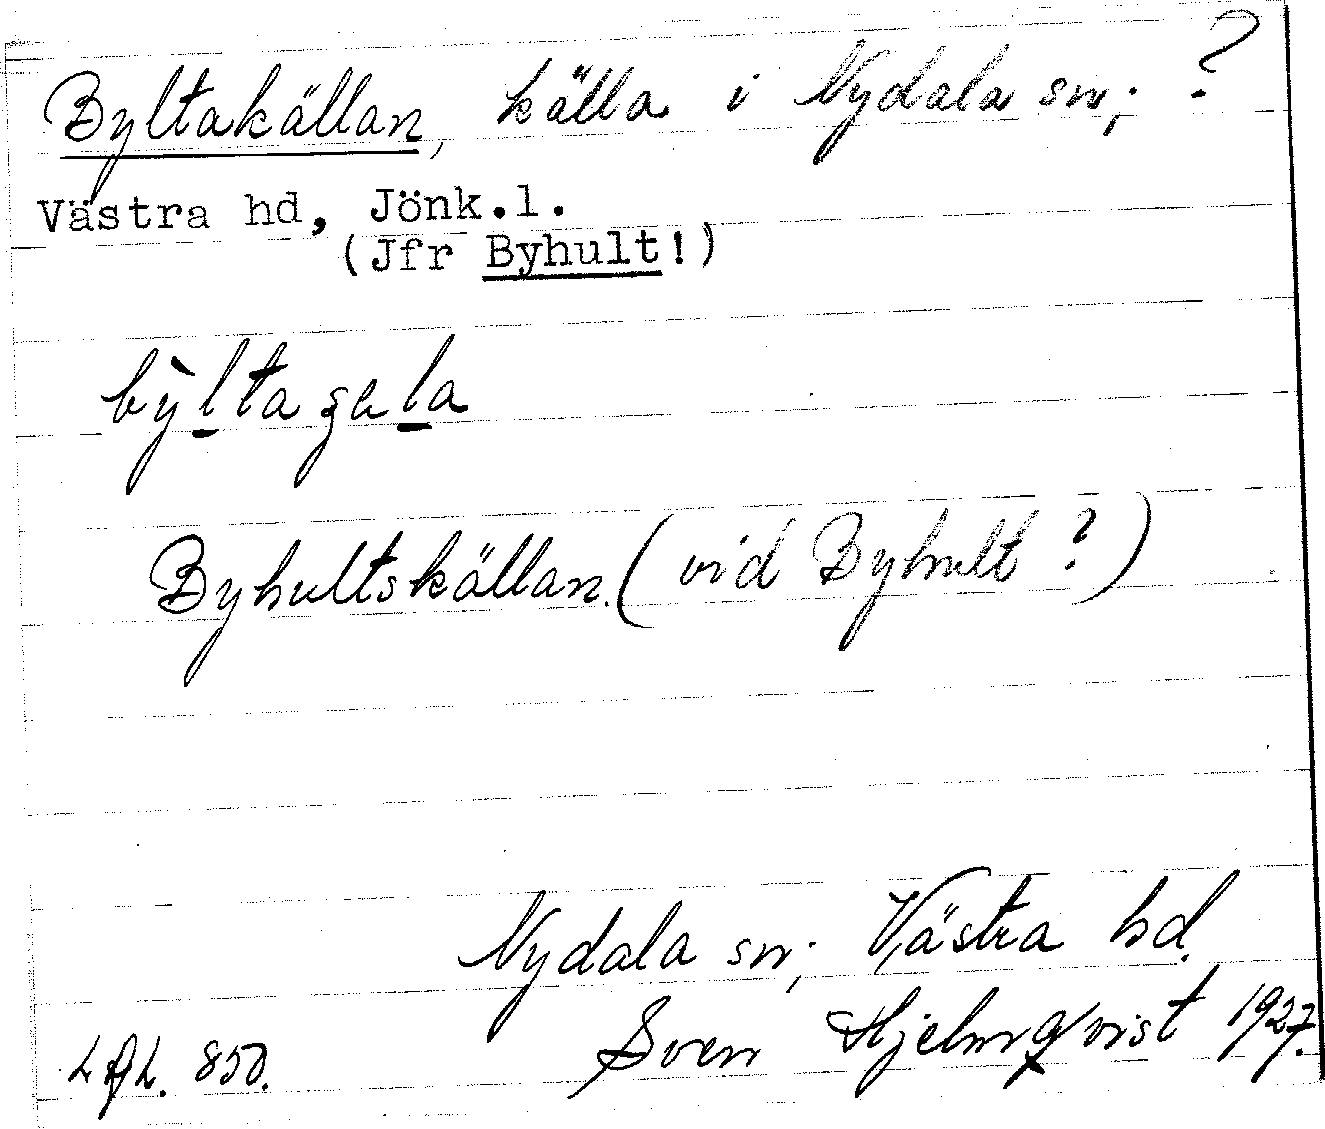 Byltakällan, källa i Nydala sn; ?
Västra hd, Jönk.l.
(Jfr Byhult!)
bỳltaʂɛla
Byhultskällan. (vid Byhult?)
Nydala sn; Västra hd.
Sven Hjelmqvist 1927.
850.